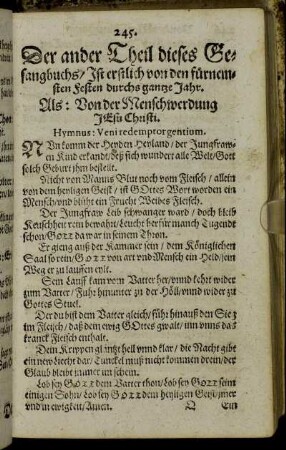 245.
Der ander Theil dieses Ge-
sangbuchs / Ist erstlich von den fürnem-
sten Festen durchs gantze Jahr.
Als: Von der Menschwerdung
JEsu Christi.
Hymnus: Veni redemptor gentium.
NUn komm der Heyden Heyland / der Jungfraw-
en Kind erkandt / deß sich wunder alle Welt / Gott
solch Geburt jhm bestellt.
Nicht von Manns Blut noch vom Fleisch / allein
von dem heyligen Geist / ist GOttes Wort worden ein
Mensch / vnd blüht ein Frucht Weibes Fleisch.
Der Jungfraw Leib schwanger ward / doch bleib
Keuschheit rein bewahrt / Leucht herfür manch Tugend
schon / GOTT da war in seinem Thron.
Er gieng auß der Kammer sein / dem Königlichen
Saal so rein / GOTT von art vnd Mensch ein Held / sein
Weg er zu lauffen eilt.
Sein Lauff kam vom Vatter her / vnnd kehrt wider
zum Vatter / Fuhr hinunter zu der Höll / vnnd wider zu
Gottes Stuel.
Der du bist dem Vatter gleich / führ hinauß den Sieg
im Fleisch / daß dein ewig GOttes gwalt / inn vnns das
kranck Fleisch enthalt.
Dein Krippen gläntzt hell vnnd klar / die Nacht gibt
ein new liecht dar / Tunckel muß nicht kommen drein / der
Glaub bleibt immer im schein.
Lob sey GOTT dem Vatter thon / Lob sey GOTT seim
einigen Sohn / Lob sey GOTT dem heyligen Geist / jmer
vnd in ewigkeit / Amen.
Q Ein